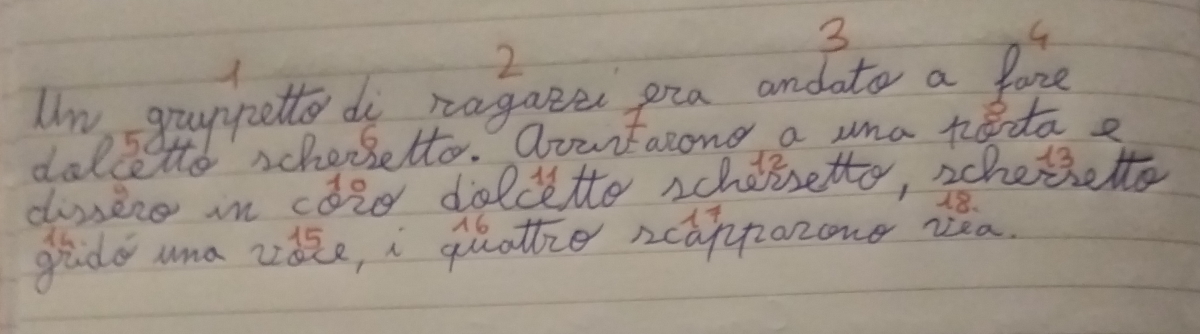 1 2 3 4
Un gruppetto di ragazzi era andato a fare
5 6 7 8
dolcetto scherzetto. Arrivarono a una porta e
9 10 11 12 13
dissero in coro dolcetto scherzetto, scherzetto
14 15 16 17 18.
gridó una voce, i quattro scapparono via.